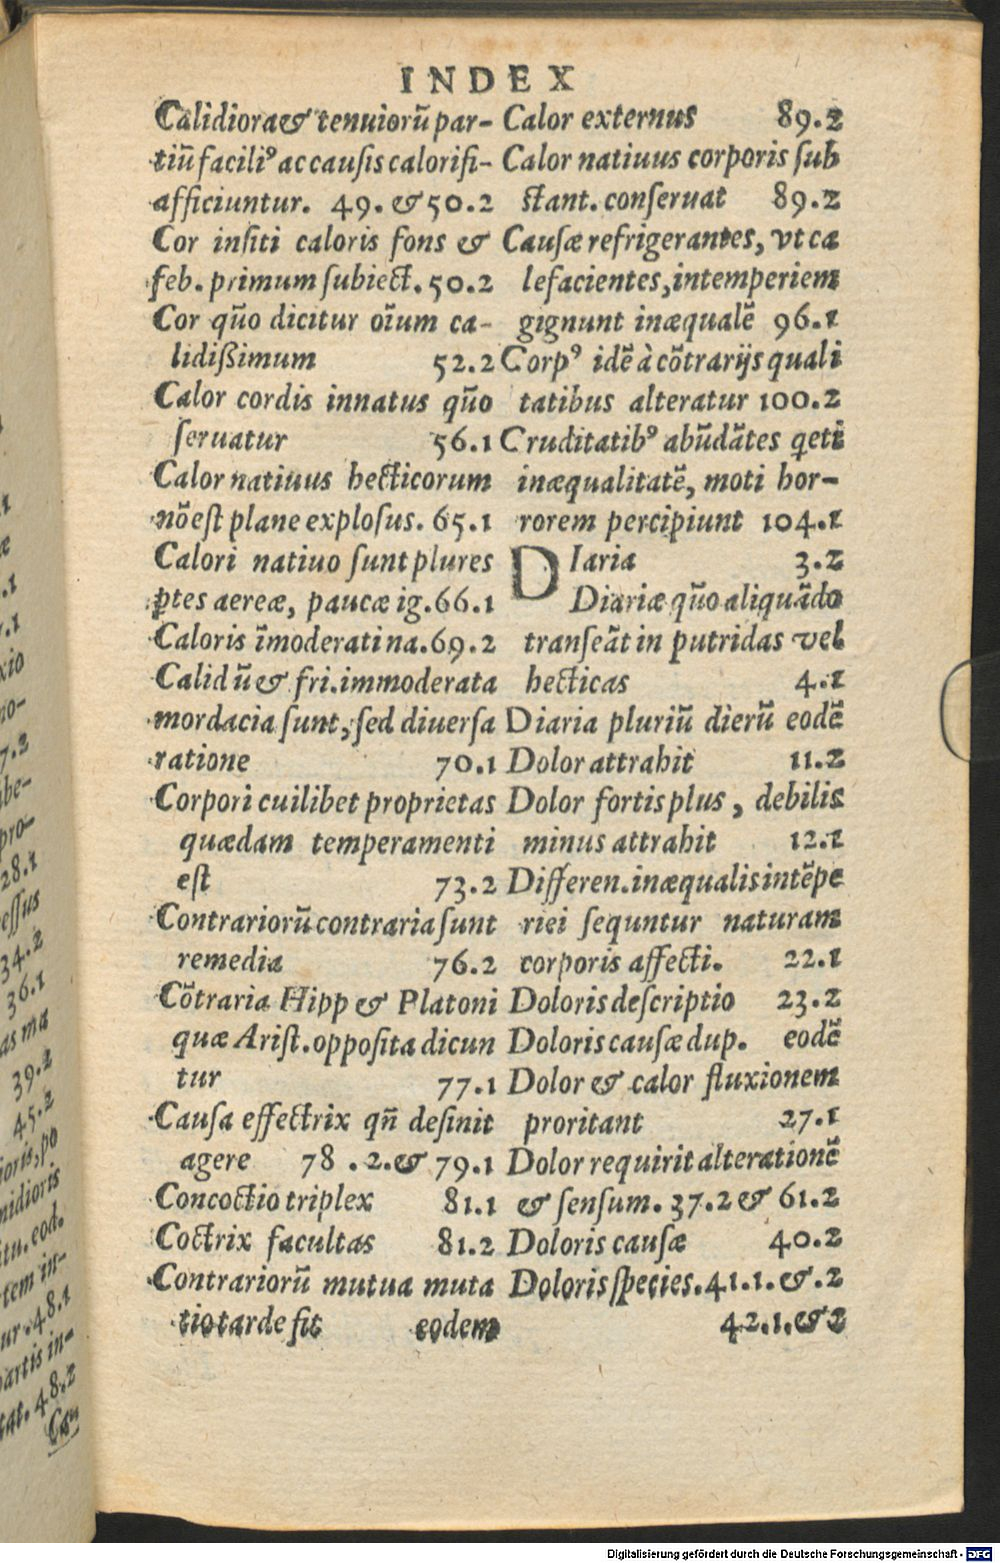 INDEX
Calidiora & tenuiorũ par-
tiũ faciliꝰ ac causis calorifi-
afficiuntur. 49. & 50.2
Cor insiti caloris fons &
feb. primum subiect. 50.2
Cor qũo dicitur oĩum ca-
lidißimum 52.2
Calor cordis innatus qũo
seruatur 56.1
Calor natiuus hecticorum
nõ est plane explosus. 65.1
Calori natiuo sunt plures
ꝑtes aereæ, paucæ ig. 66.1
Caloris ĩmoderati na. 69.2
Calidũ & fri. immoderata
mordacia sunt, sed diuersa
ratione 70.1
Corpori cuilibet proprietas
quædam temperamenti
est 73.2
Contrariorũ contraria sunt
remedia 76.2
Cõtraria Hipp & Platoni
quæ Arist. opposita dicun
tur 77.1
Causa effectrix qñ desinit
agere 78 .2. & 79.1
Concoctio triplex 81.1
Coctrix facultas 81.2
Contrariorũ mutua muta
tio tarde fit eodem
Calor externus 89.2
Calor natiuus corporis sub
stant. conseruat 89.2
Causæ refrigerantes, vt ca
lefacientes, intemperiem
gignunt inæqualẽ 96.1
Corpꝰ idẽ à cõtrarijs quali
tatibus alteratur 100.2
Cruditatibꝰ abũdãtes q̃eti
inæqualitatẽ, moti hor-
rorem percipiunt 104.1
DIaria 3.2
Diariæ qũo aliquãdo
transeãt in putridas vel
hecticas 4.1
Diaria pluriũ dierũ eodẽ
Dolor attrahit 11.2
Dolor fortis plus, debilis
minus attrahit 12.1
Differen. inæqualis intẽpe
riei sequntur naturam
corporis affecti. 22.1
Doloris descriptio 23.2
Doloris causæ dup. eodẽ
Dolor & calor fluxionem
proritant 27.1
Dolor requirit alterationẽ
& sensum. 37.2 & 61.2
Doloris causæ 40.2
Doloris species. 41.1. &.2
42.1. & 2
.1
7.2
28.1
34.2
36.1
as ma
39.2
45.2
itu. eod.
tem in-
ur. 48.1
artis in-
tat. 48.2
Cau
Digitalisierung gefördert durch die Deutsche Forschungsgemeinschaft - DFG